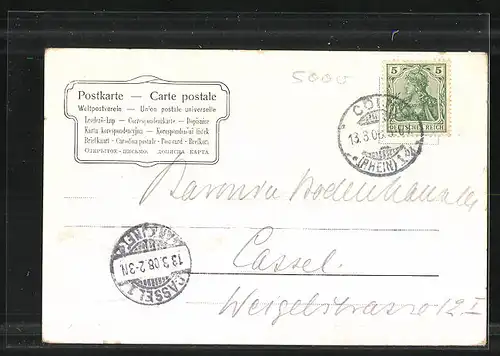 5000
Postkarte — Carte postale
Weltpostverein — Union postale universelle
Levelező-Lap — Correspondentkarte — Dopisnice
Karta korespondencyjna — Korespondenční lístek
Briefkaart — Cartolina postale — Postcard — Brefkort
ОТКРЫТОЕ ПИСЬМО ДОПИСНА КАРТА
5 5
DEUTSCHES REICH
13.3.08
(RHEIN) 1
Baronin Bodenhausen
Cassel
Weigelstrasse 12 I
CASSEL 1
13.3.08.2-3N.